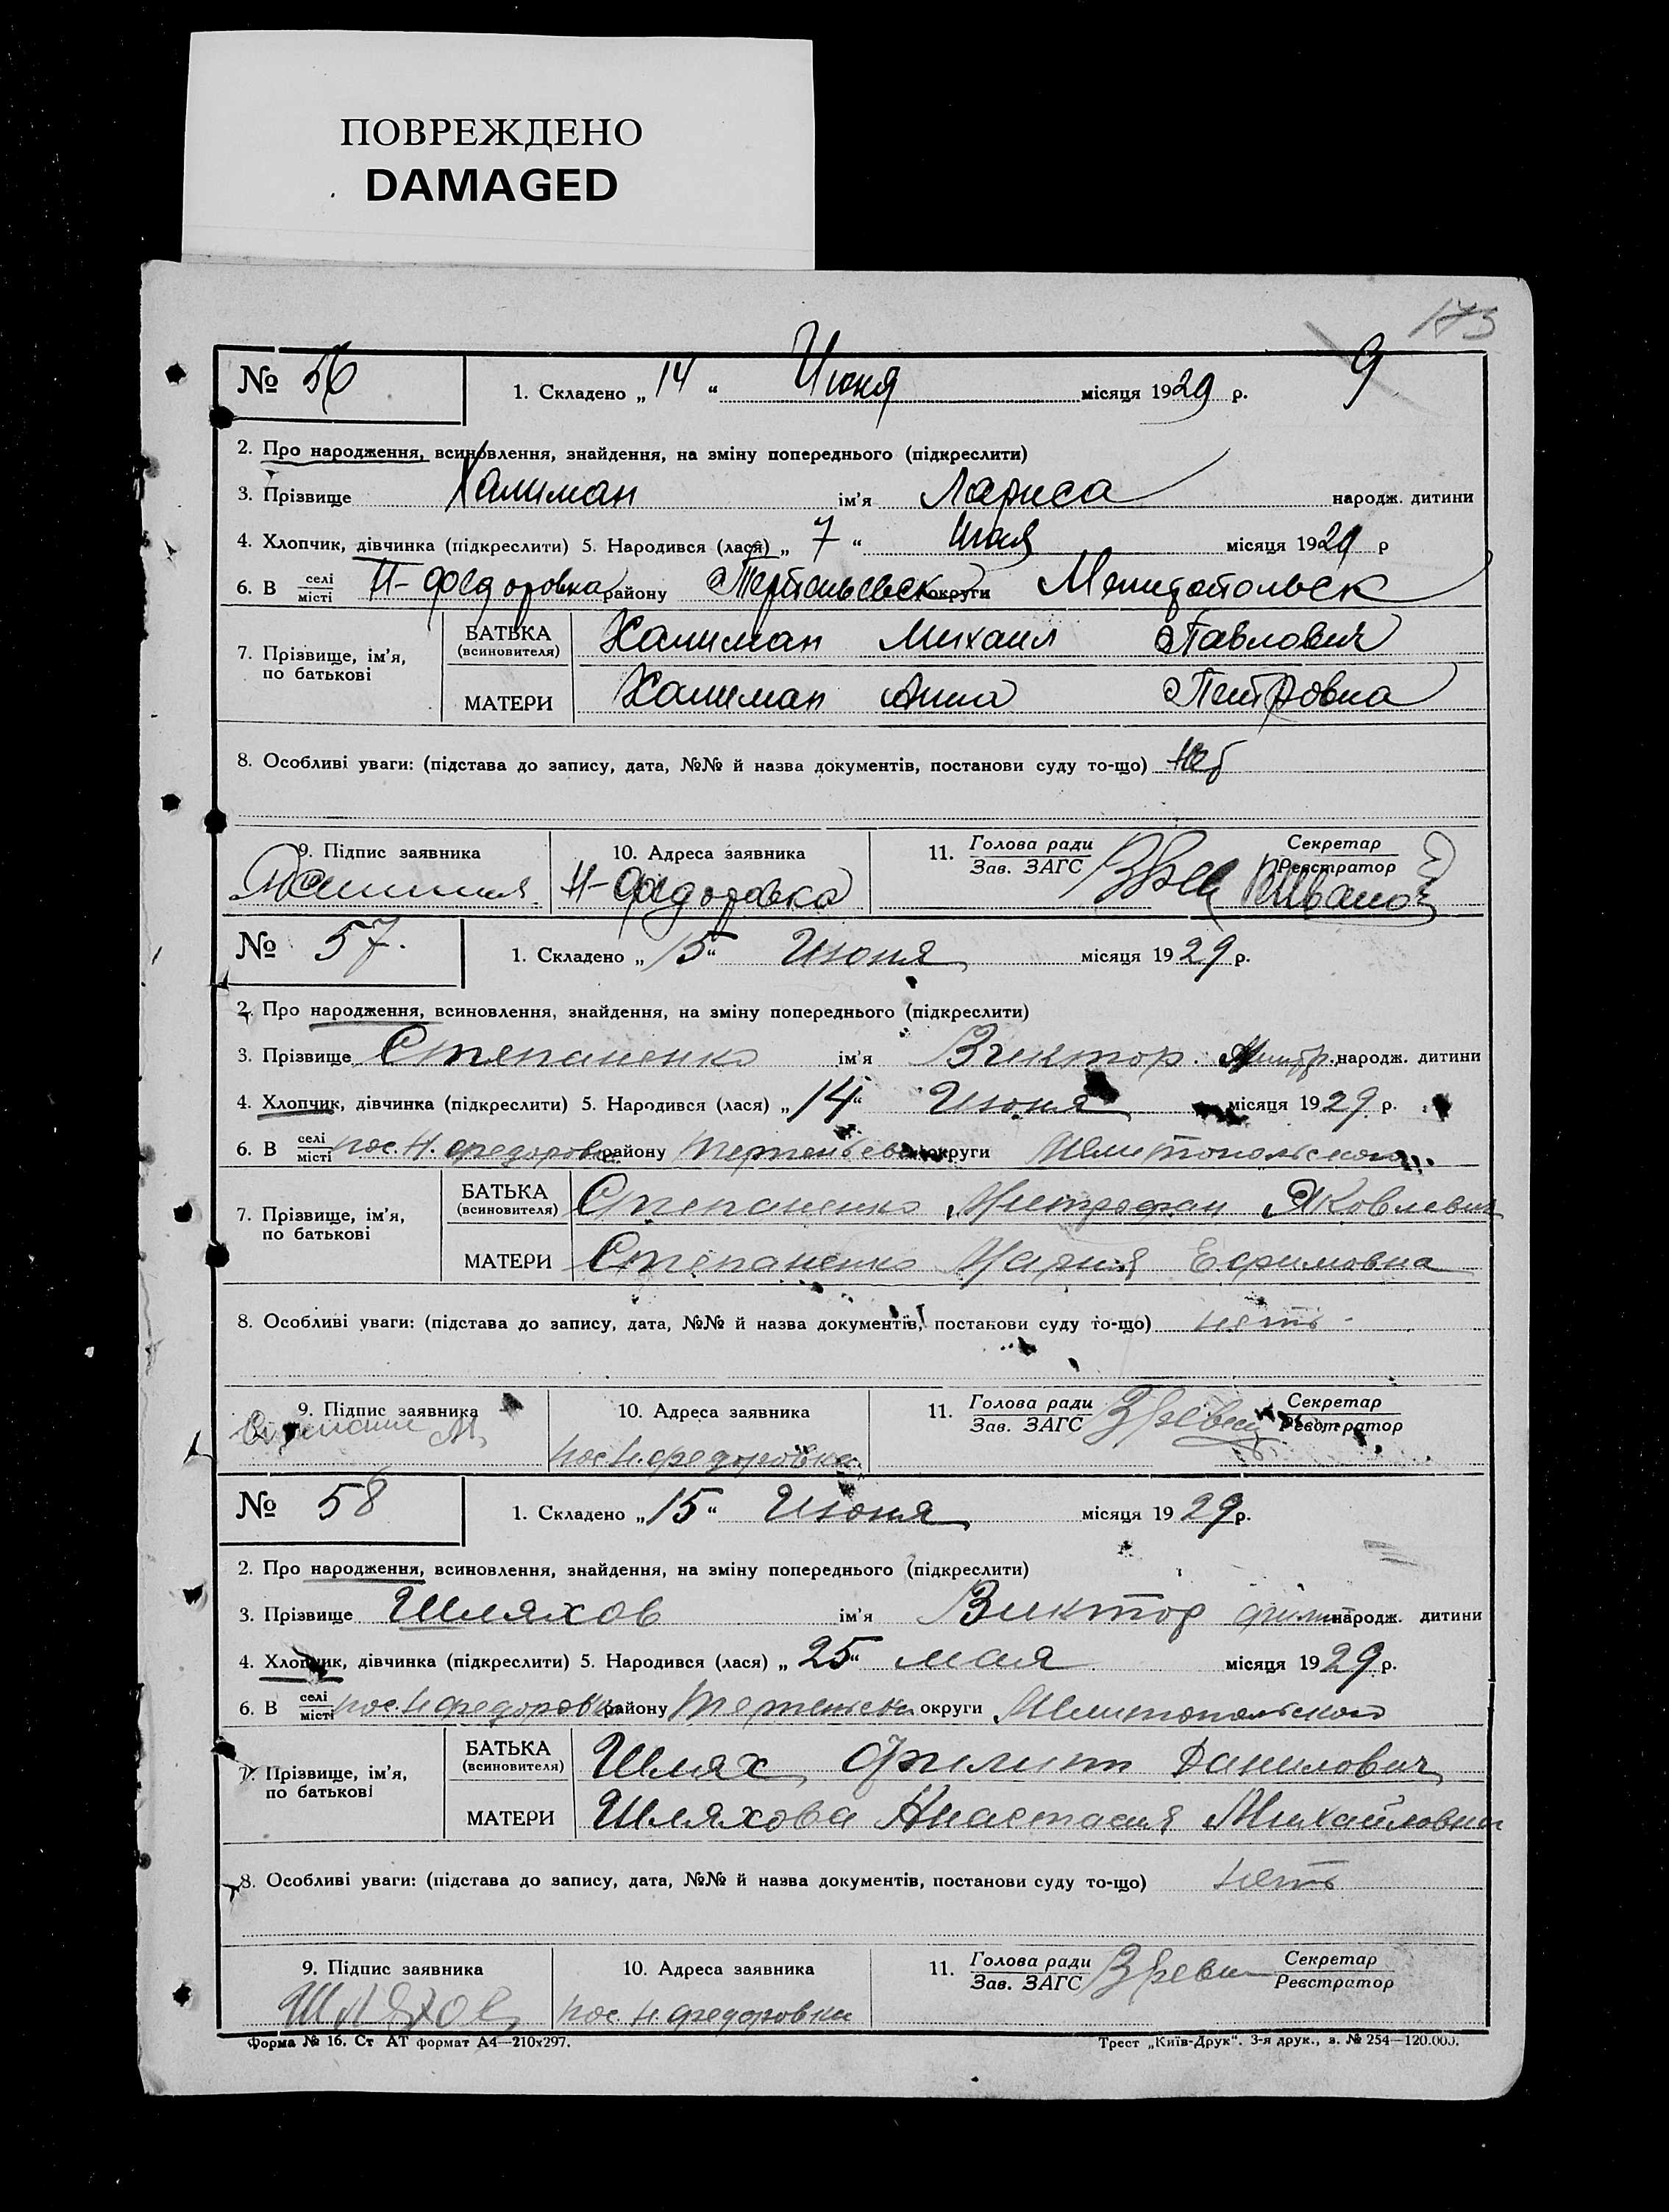 ПОВРЕЖДЕНО
DAMAGED
173
9
№ 56
1. Складено „ 14 “ Июня місяця 1929 р.
2. Про народження, всиновлення, знайдення, на зміну попереднього (підкреслити)
3. Прізвище Халиман ім'я Лариса народж. дитини
4. Хлопчик, дівчинка (підкреслити) 5. Народився (лася) „ 7 “ мая місяця 1929 р
6. В селі місті Н-Федоровка району округи Мелитопольск
7. Прізвище, ім'я, по батькові
БАТЬКА (всиновителя) Халиман Михаил Павлович
МАТЕРИ Халиман Анна Петровна
8. Особливі уваги: (підстава до запису, дата, №№ й назва документів, постанови суду то-що)
9. Підпис заявника
10. Адреса заявника Н-Федоровка
11. Голова ради Зав. ЗАГС Секретар Реєстратор
№ 57.
1. Складено „ 15 “ Июня місяця 1929 р.
2. Про народження, всиновлення, знайдення, на зміну попереднього (підкреслити)
3. Прізвище Степаненко ім'я Виктор Митр. народж. дитини
4. Хлопчик, дівчинка (підкреслити) 5. Народився (лася) „ 14 “ Июня місяця 1929 р.
6. В селі місті пос. Н. Федоровка району округи Мелитопольского
7. Прізвище, ім'я, по батькові
БАТЬКА (всиновителя) Степаненко Митрофан Яковлевич
МАТЕРИ Степаненко Мария Ефимовна
8. Особливі уваги: (підстава до запису, дата, №№ й назва документів, постанови суду то-що) нетъ
9. Підпис заявника
10. Адреса заявника пос. Н. Федоровка
11. Голова ради Зав. ЗАГС Секретар Реєстратор
№ 58
1. Складено „ 15 “ Июня місяця 1929 р.
2. Про народження, всиновлення, знайдення, на зміну попереднього (підкреслити)
3. Прізвище Шляхов ім'я Виктор Филип народж. дитини
4. Хлопчик, дівчинка (підкреслити) 5. Народився (лася) „ 25 “ мая місяця 1929 р.
6. В селі місті пос. Н Федоровка району округи Мелитопольского
7. Прізвище, ім'я, по батькові
БАТЬКА (всиновителя) Шлях Филипп Данилович
МАТЕРИ Шляхова Анастасия Михайловна
8. Особливі уваги: (підстава до запису, дата, №№ й назва документів, постанови суду то-що) нетъ
9. Підпис заявника Шляхов
10. Адреса заявника пос. Н. Федоровка
11. Голова ради Зав. ЗАГС Секретар Реєстратор
Форма № 16. Ст АТ формат А4—210x297.
Трест „Київ-Друк“. 3-я друк., з. № 254—120.000.